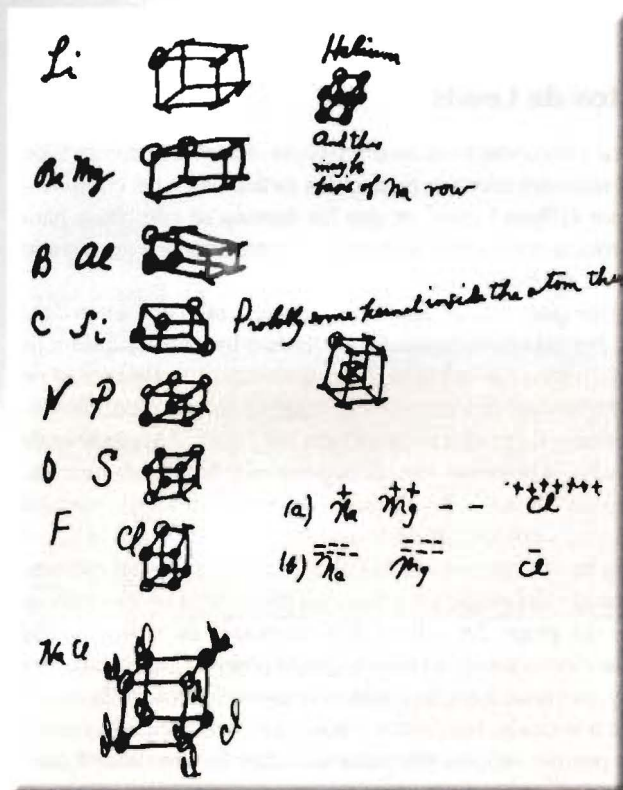 tos de Lewis
Li
Helium
And this
may be
basis of Na row
Be Mg
B Al
C Si
Probably some kernel inside the atom
N P
O S
F Cl
(a) + Na ++ Mg - - +++++++ Cl
(b) Na Mg - Cl
Na Cl
Cl
Cl